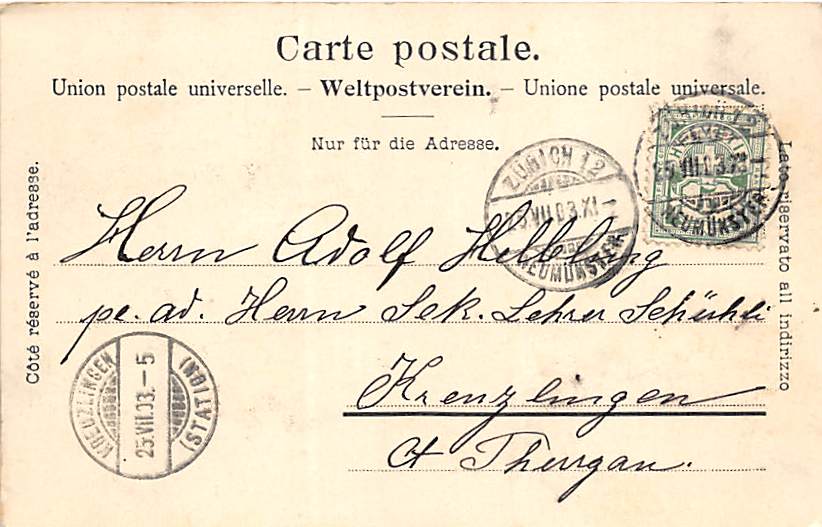 Carte postale.
Union postale universelle. – Weltpostverein. – Unione postale universale.
Nur für die Adresse.
Côté réservé à l'adresse.
Lato riservato all indirizzo
ZÜRICH 12
VII.03.XI
NEUMÜNSTER
ZÜRICH 12
25.VII.03
NEUMÜNSTER
HELVETIA
Herrn Adolf Helbling
pr. ad. Herrn Sek. Lehrer Schühli
Kreuzlingen
Ct Thurgau.
KREUZLINGEN
25.VII.03.–5
(STATION)